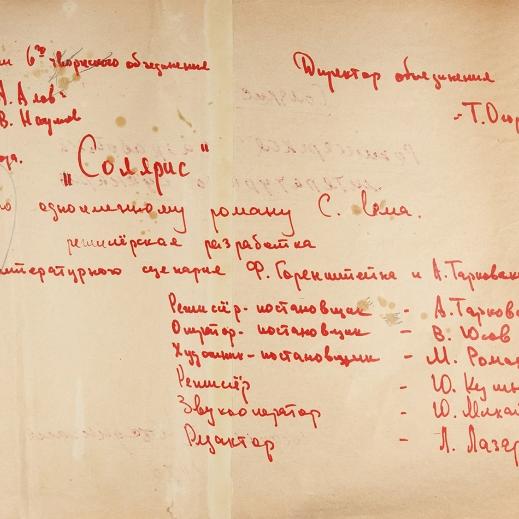 6го творческого объединения
Директор объединения
А. Алов
В. Наумов
- Т. Огор
"Солярис"
одноименному роману С. Лема.
режиссёрская разработка
литературного сценария Ф. Горенштейна и А. Тарковск
Режиссёр-постановщик - А. Тарков
Оператор-постановщик - В. Юсов
Художник-постановщик - М. Рома
Режиссёр - Ю. Куш
Звукооператор - Ю. Михай
Редактор - Л. Лазар